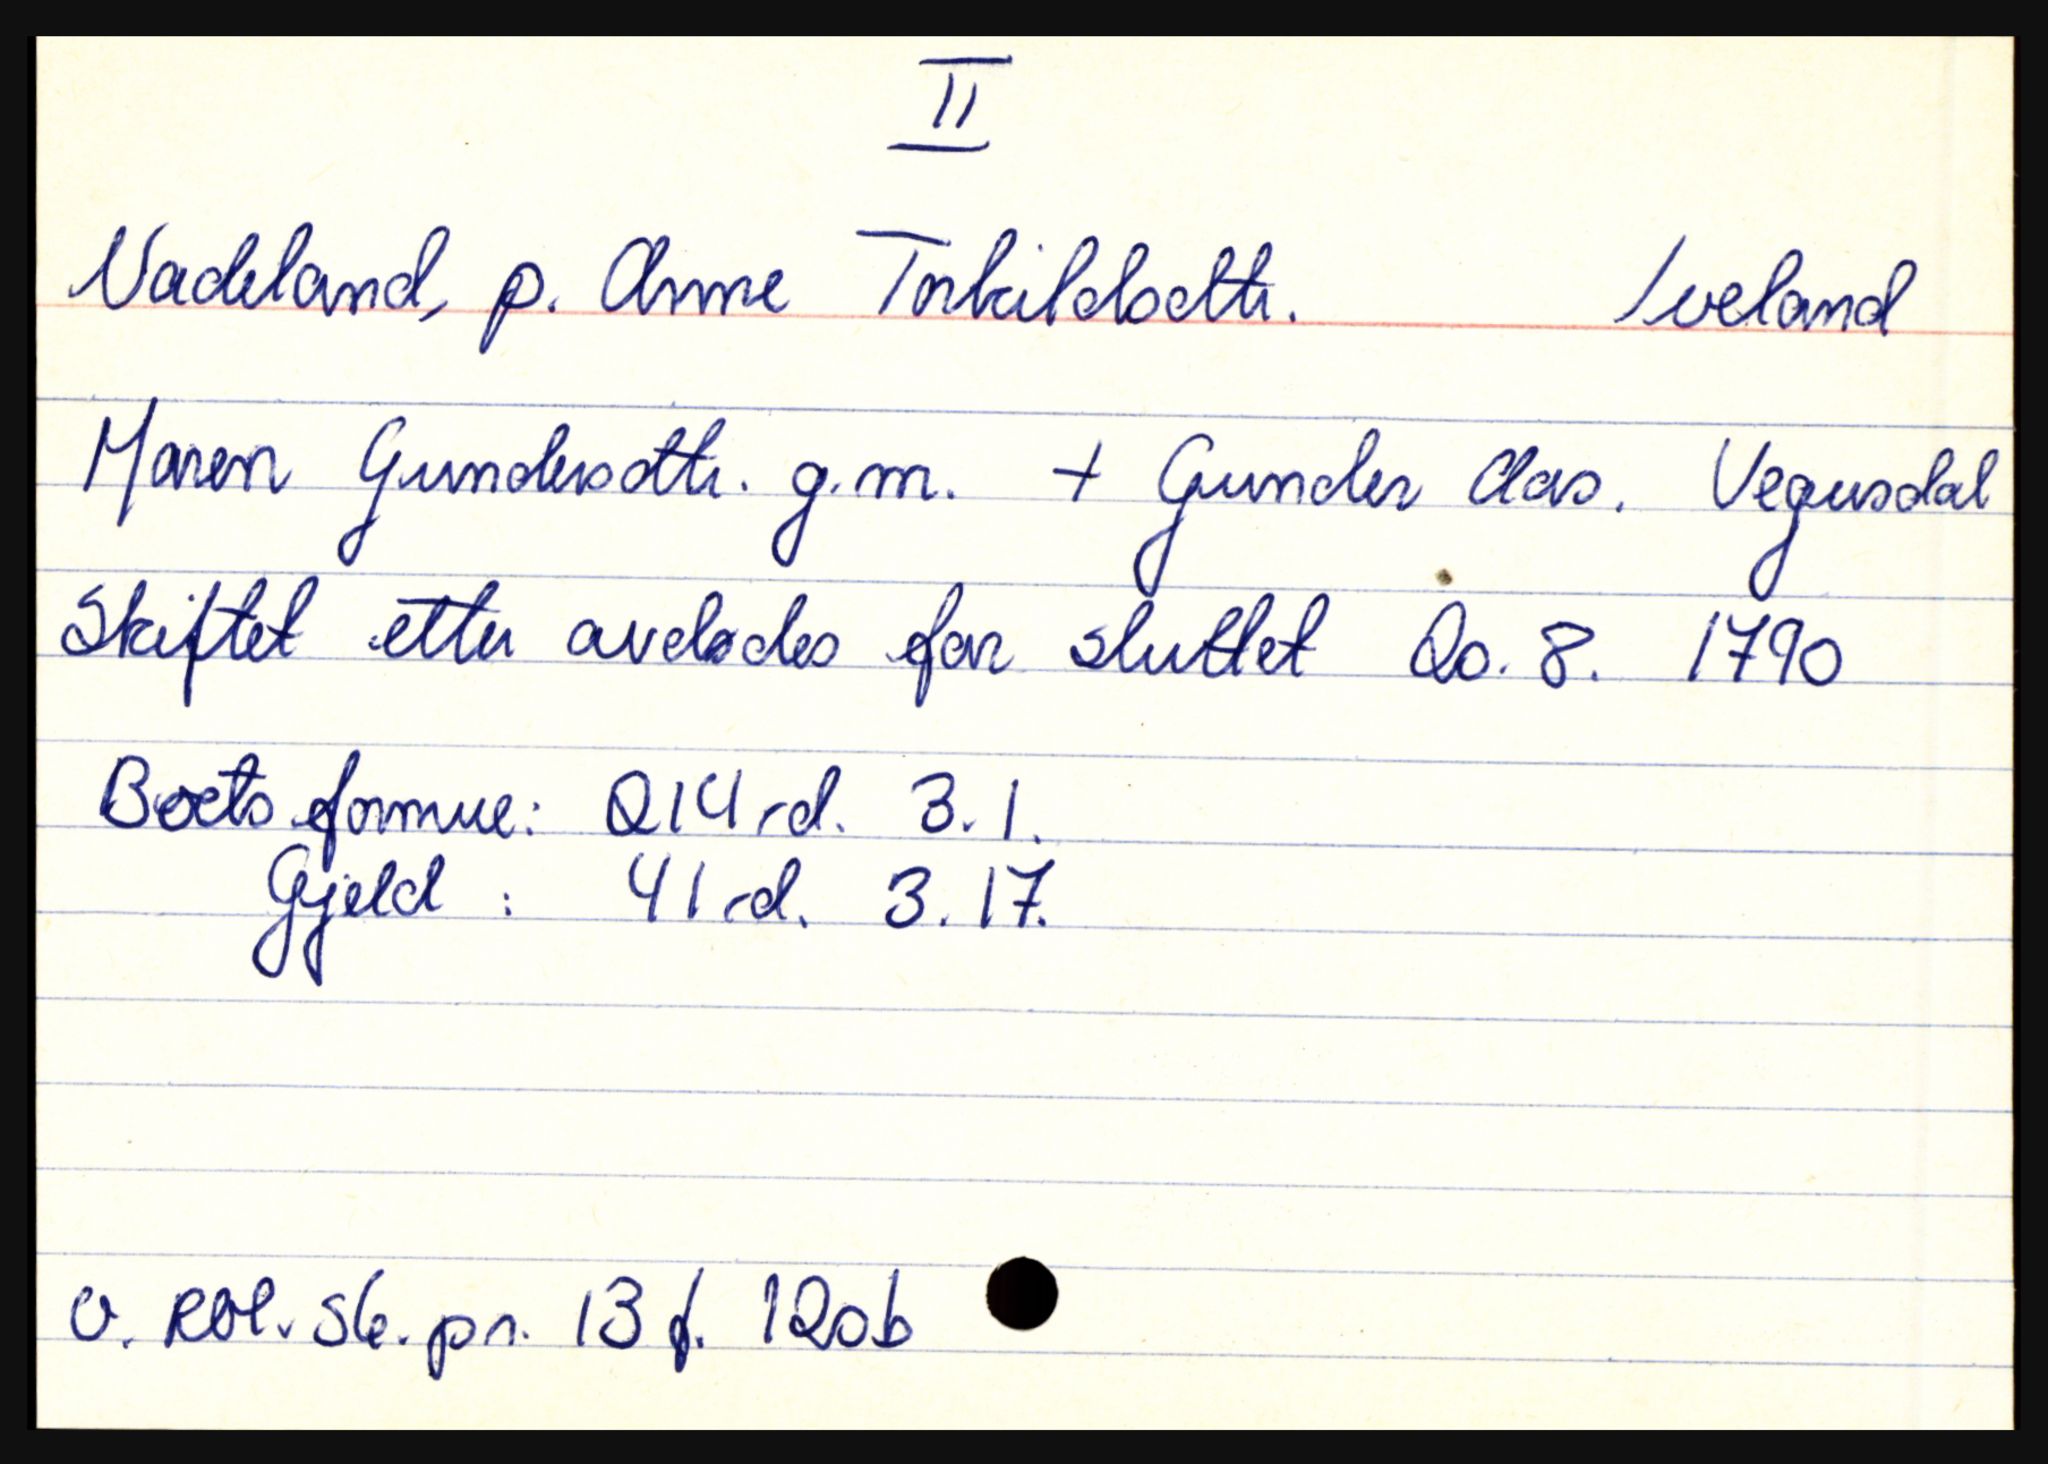 II
Nadeland, p. Anne Torkildsdtr. Iveland
Maren Gundersdtr. g.m. + Gunder Aas. Vegusdal
Skiftet etter avdødes far sluttet 20. 8. 1790
Boets formue: 214 rd. 3. 1.
Gjeld : 41 rd. 3. 17.
v. Rbl. sk. pr. 13 f. 120b